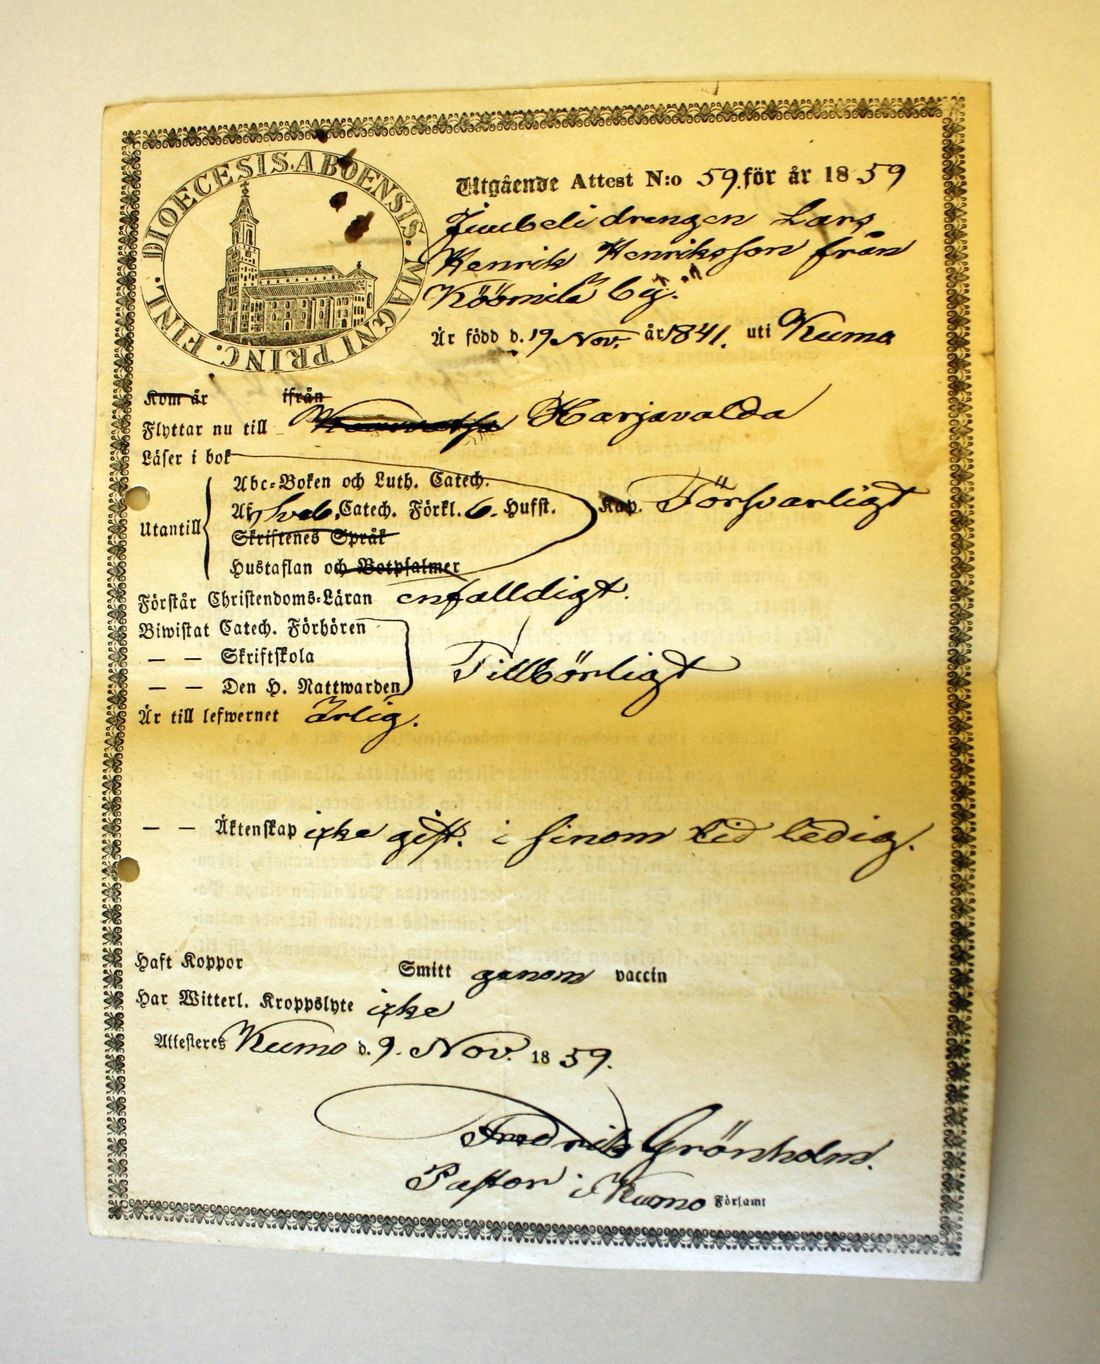 DIOECESIS. ABOENSIS. MAGNI PRINC. FINL.
Utgående Attest N:o 59. för år 1859
drengen Lars
Henrik Henriksson från
by.
Är född d. 19 Nov. år 1841. uti Kumo
Kom år ifrån
Flyttar nu till Harjavalda
Läser i bok
Abc-Boken och Luth. Catech.
Utantill Af Sveb. Catech. Förkl. 6. Husst. Kap. Försvarligt
Skriftenes Språk
Hustaflan och Botpsalmer
Förstår Christendoms-Läran enfalldigt.
Biwistat Catech. Förhören
— — Skriftskola
Tillbörligt
— — Den H. Nattwarden
Är till lefwernet Ärlig.
— — Äktenskap icke gift. i sinom tid ledig.
Haft Koppor Smitt genom vaccin
Har Witterl. Kroppslyte icke
Attesteres Kumo d. 9. Nov. 1859.
Fredrik Grönholm.
Pastor i Kumo Församl